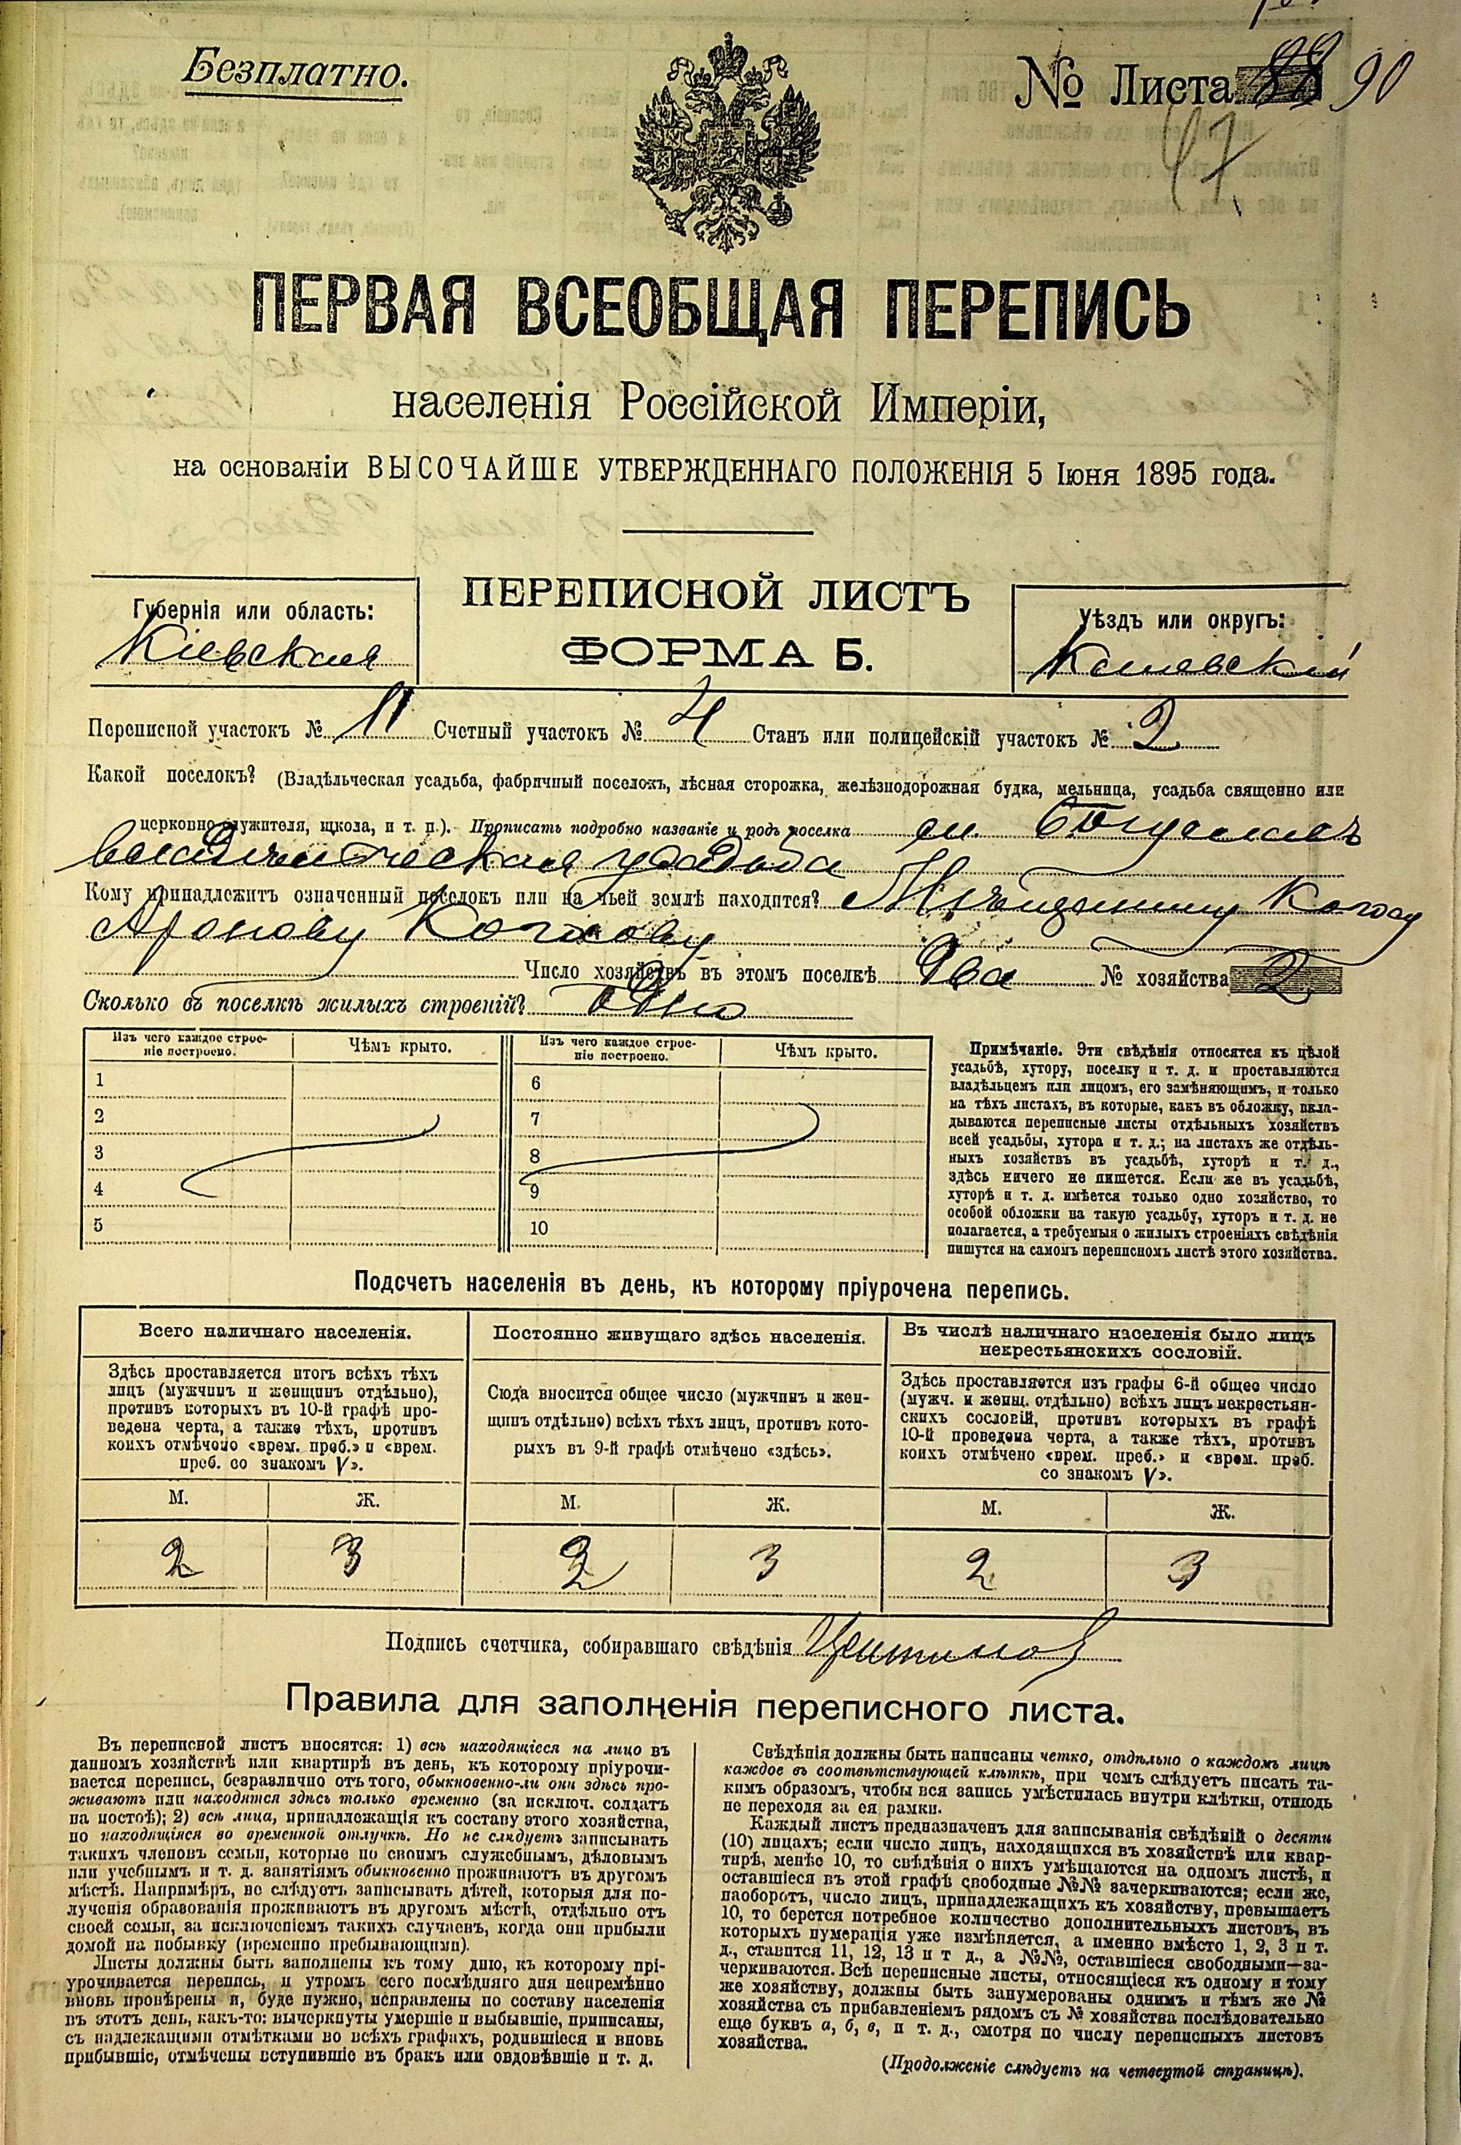 Безплатно.
№ Листа 88 90
47
ПЕРВАЯ ВСЕОБЩАЯ ПЕРЕПИСЬ
населенія Россійской Имперіи,
на основаніи ВЫСОЧАЙШЕ УТВЕРЖДЕННАГО ПОЛОЖЕНІЯ 5 Іюня 1895 года.
ПЕРЕПИСНОЙ ЛИСТЪ
ФОРМА Б.
Губернія или область:
Кіевская
Уѣздъ или округъ:
Каневскій
Переписной участокъ № 11 Счетный участокъ № 4 Станъ или полицейскій участокъ № 2
Какой поселокъ? (Владѣльческая усадьба, фабричный поселокъ, лѣсная сторожка, желѣзнодорожная будка, мельница, усадьба священно или
церковно-служителя, школа, и т. п.). Прописать подробно названіе и родъ поселка м. Богуславъ
усадьба
Кому принадлежитъ означенный поселокъ или на чьей землѣ находится? Мѣщанину
Аронову
Число хозяйствъ въ этомъ поселкѣ два № хозяйства 2
Сколько въ поселкѣ жилыхъ строеній? одно
Изъ чего каждое строе-
ніе построено.
Чѣмъ крыто.
Изъ чего каждое строе-
ніе построено.
Чѣмъ крыто.
1
2
3
4
5
6
7
8
9
10
Примѣчаніе. Эти свѣдѣнія относятся къ цѣлой
усадьбѣ, хутору, поселку и т. д. и проставляются
владѣльцемъ или лицомъ, его замѣняющимъ, и только
на тѣхъ листахъ, въ которые, какъ въ обложку, вкла-
дываются переписные листы отдѣльныхъ хозяйствъ
всей усадьбы, хутора и т. д.; на листахъ же отдѣль-
ныхъ хозяйствъ въ усадьбѣ, хуторѣ и т. д.,
здѣсь ничего не пишется. Если же въ усадьбѣ,
хуторѣ и т. д. имѣется только одно хозяйство, то
особой обложки на такую усадьбу, хуторъ и т. д. не
полагается, а требуемыя о жилыхъ строеніяхъ свѣдѣнія
пишутся на самомъ переписномъ листѣ этого хозяйства.
Подсчетъ населенія въ день, къ которому пріурочена перепись.
Всего наличнаго населенія.
Здѣсь проставляется итогъ всѣхъ тѣхъ
лицъ (мужчинъ и женщинъ отдѣльно),
противъ которыхъ въ 10-й графѣ про-
ведена черта, а также тѣхъ, противъ
коихъ отмѣчено «врем. преб.» и «врем.
преб. со знакомъ V».
М. Ж.
2 3
Постоянно живущаго здѣсь населенія.
Сюда вносится общее число (мужчинъ и жен-
щинъ отдѣльно) всѣхъ тѣхъ лицъ, противъ кото-
рыхъ въ 9-й графѣ отмѣчено «здѣсь».
М. Ж.
2 3
Въ числѣ наличнаго населенія было лицъ
некрестьянскихъ сословій.
Здѣсь проставляется изъ графы 6-й общее число
(мужч. и женщ. отдѣльно) всѣхъ лицъ некрестьян-
скихъ сословій, противъ которыхъ въ графѣ
10-й проведена черта, а также тѣхъ, противъ
коихъ отмѣчено «врем. преб.» и «врем. преб.
со знакомъ V».
М. Ж.
2 3
Подпись счетчика, собиравшаго свѣдѣнія
Правила для заполненія переписного листа.
Въ переписной листъ вносятся: 1) всѣ находящіеся на лицо въ
данномъ хозяйствѣ или квартирѣ въ день, къ которому пріурочи-
вается перепись, безразлично отъ того, обыкновенно-ли они здѣсь про-
живаютъ или находятся здѣсь только временно (за исключ. солдатъ
на постоѣ); 2) всѣ лица, принадлежащія къ составу этого хозяйства,
но находящіяся во временной отлучкѣ. Но не слѣдуетъ записывать
такихъ членовъ семьи, которые по своимъ служебнымъ, дѣловымъ
или учебнымъ и т. д. занятіямъ обыкновенно проживаютъ въ другомъ
мѣстѣ. Напримѣръ, не слѣдуетъ записывать дѣтей, которыя для по-
лученія образованія проживаютъ въ другомъ мѣстѣ, отдѣльно отъ
своей семьи, за исключеніемъ такихъ случаевъ, когда они прибыли
домой на побывку (временно пребывающими).
Листы должны быть заполнены къ тому дню, къ которому прі-
урочивается перепись, и утромъ сего послѣдняго дня непремѣнно
вновь провѣрены и, буде нужно, исправлены по составу населенія
въ этотъ день, какъ-то: вычеркнуты умершіе и выбывшіе, приписаны,
съ надлежащими отмѣтками во всѣхъ графахъ, родившіеся и вновь
прибывшіе, отмѣчены вступившіе въ бракъ или овдовѣвшіе и т. д.
Свѣдѣнія должны быть написаны четко, отдѣльно о каждомъ лицѣ
каждое въ соотвѣтствующей клѣткѣ, при чемъ слѣдуетъ писать та-
кимъ образомъ, чтобы вся запись умѣстилась внутри клѣтки, отнюдь
не переходя за ея рамки.
Каждый листъ предназначенъ для записыванія свѣдѣній о десяти
(10) лицахъ; если число лицъ, находящихся въ хозяйствѣ или квар-
тирѣ, менѣе 10, то свѣдѣнія о нихъ умѣщаются на одномъ листѣ, и
оставшіеся въ этой графѣ свободные №№ зачеркиваются; если же,
наоборотъ, число лицъ, принадлежащихъ къ хозяйству, превышаетъ
10, то берется потребное количество дополнительныхъ листовъ, въ
которыхъ нумерація уже измѣняется, а именно вмѣсто 1, 2, 3 и т.
д., ставится 11, 12, 13 и т д., а №№, оставшіеся свободными—за-
черкиваются. Всѣ переписные листы, относящіеся къ одному и тому
же хозяйству, должны быть занумерованы однимъ и тѣмъ же №
хозяйства съ прибавленіемъ рядомъ съ № хозяйства послѣдовательно
еще буквъ а, б, в, и т. д., смотря по числу переписныхъ листовъ
хозяйства.
(Продолженіе слѣдуетъ на четвертой страницѣ).